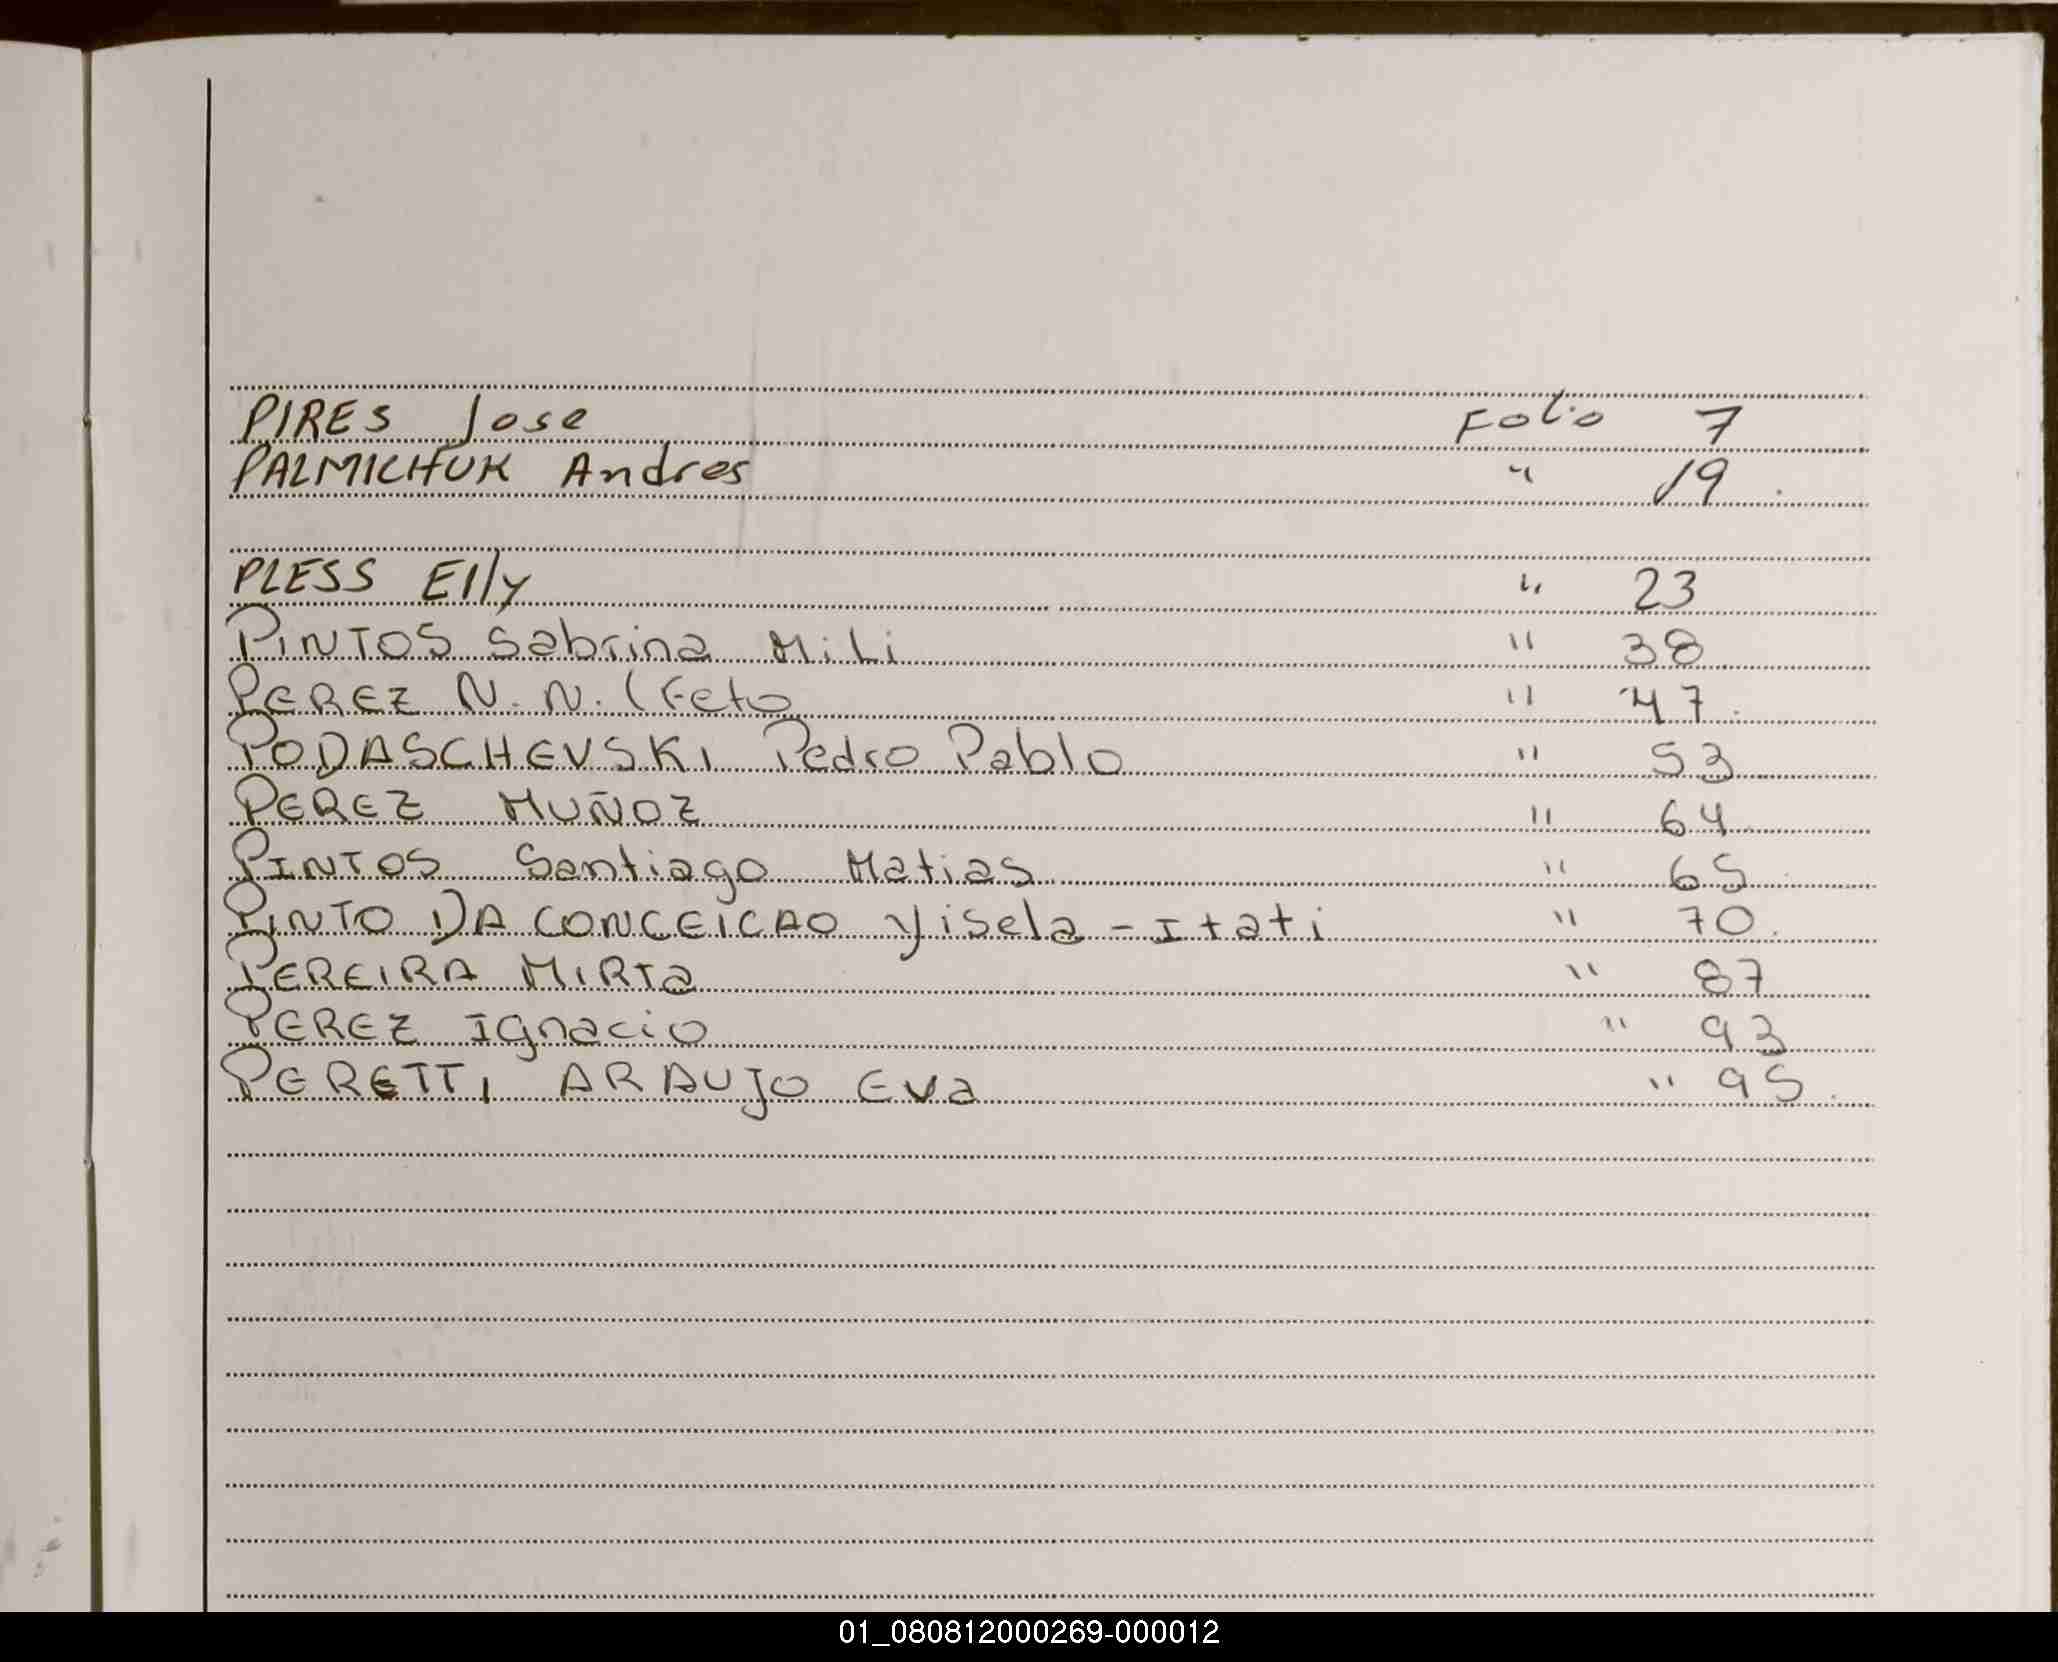 PIRES Jose Folio 7
PALMICHUK Andres " 19
PLESS Elly " 23
PINTOS Sabrina MiLi " 38
PEREZ N. N. (Feto " 47
PODASCHEVSKI Pedro Pablo " 53
PEREZ MUÑOZ " 64
PINTOS Santiago Matias " 65
PINTO DA CONCEICAO Yisela - Itati " 70
PEREIRA MIRTa " 87
PEREZ Ignacio " 93
PERETTI ARAUJO Eva " 95
01_080812000269-000012